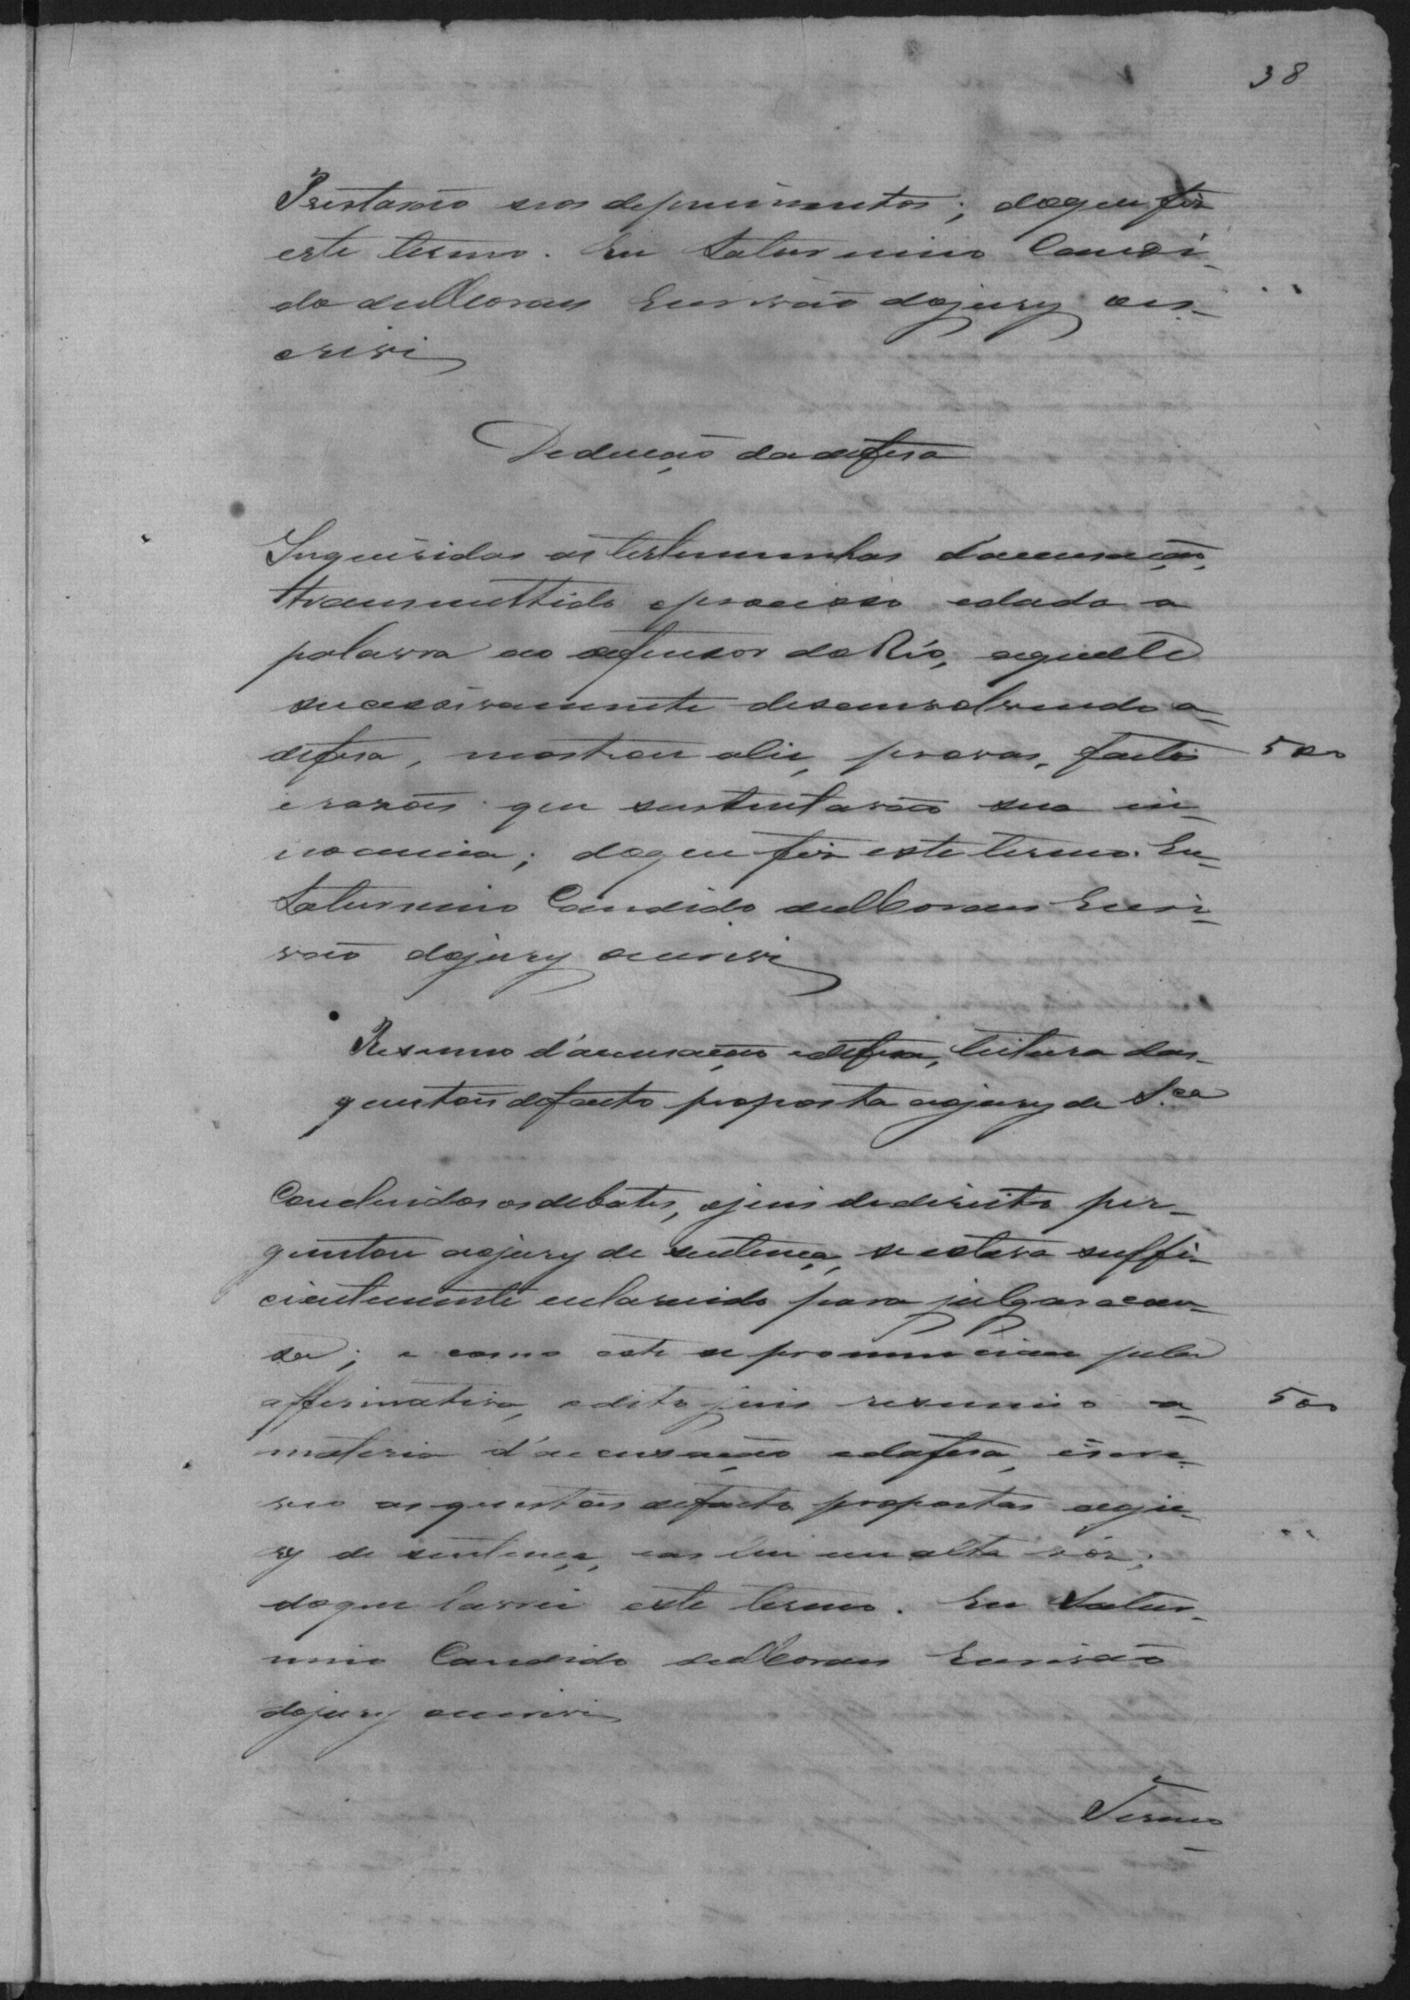 38
Prestarão seos depoimentos; doque fiz
este termo. Eu Saturnino Candi-
do de Moraes Escrivão dojury oes-
crivi
Deducção da defesa
Inqueridas as testemunhas d'accusação,
transmettido oprocesso edada a
palavra ao defensor do Réo, aquelle
sucessivamente desenvolvendo a-
defesa, mostrou a lei, provas, factos
500
erazões que sustentarão sua in-
nocencia; doque fiz este termo. Eu-
Saturnino Candido de Moraes Escri-
vão dojury oescrivi
Resumo d'accusação edefesa, leitura das-
questões defacto proposta aojury de S.ça
Concluidos os debates, ojuis de direito per-
guntou aojury de sentença, se estava suffi-
cientemente esclarecido para julgar acau-
sa; e como este se pronunciou pela
affirmativa, odito juis resumio a-
500
materia d'accusação edefesa, escre-
veo as questões defacto propostas aoju-
ry de sentença, eas leu em alta vóz;
doque lavrei este termo. Eu Satur-
nino Candido de Moraes Escrivão
dojury oescrivi
Termo